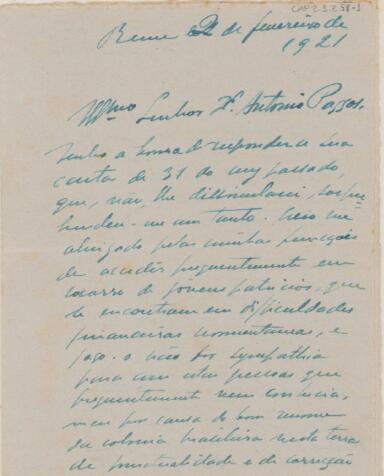 CMP 2.3.258-1
Berne 2 de fevereiro de
1921
Illmo Senhor Dr. Antonio Passos,
Tenho a honra de responder a sua
carta de 31 do mez passado,
que, não lhe dissimularei, surpre-
hendeu-me um tanto. Vejo-me
obrigado pelas minhas funcções
de acudir frequentemente em
soccorro de jovens patricios, que
se encontram em difficuldades
financeiras momentaneas, e
faço-o não por sympathia
para com estas pessoas que
frequentemente nem conhecia,
mas por causa do bom renome
da colonia brasileira nesta terra
de pontualidade e de correção